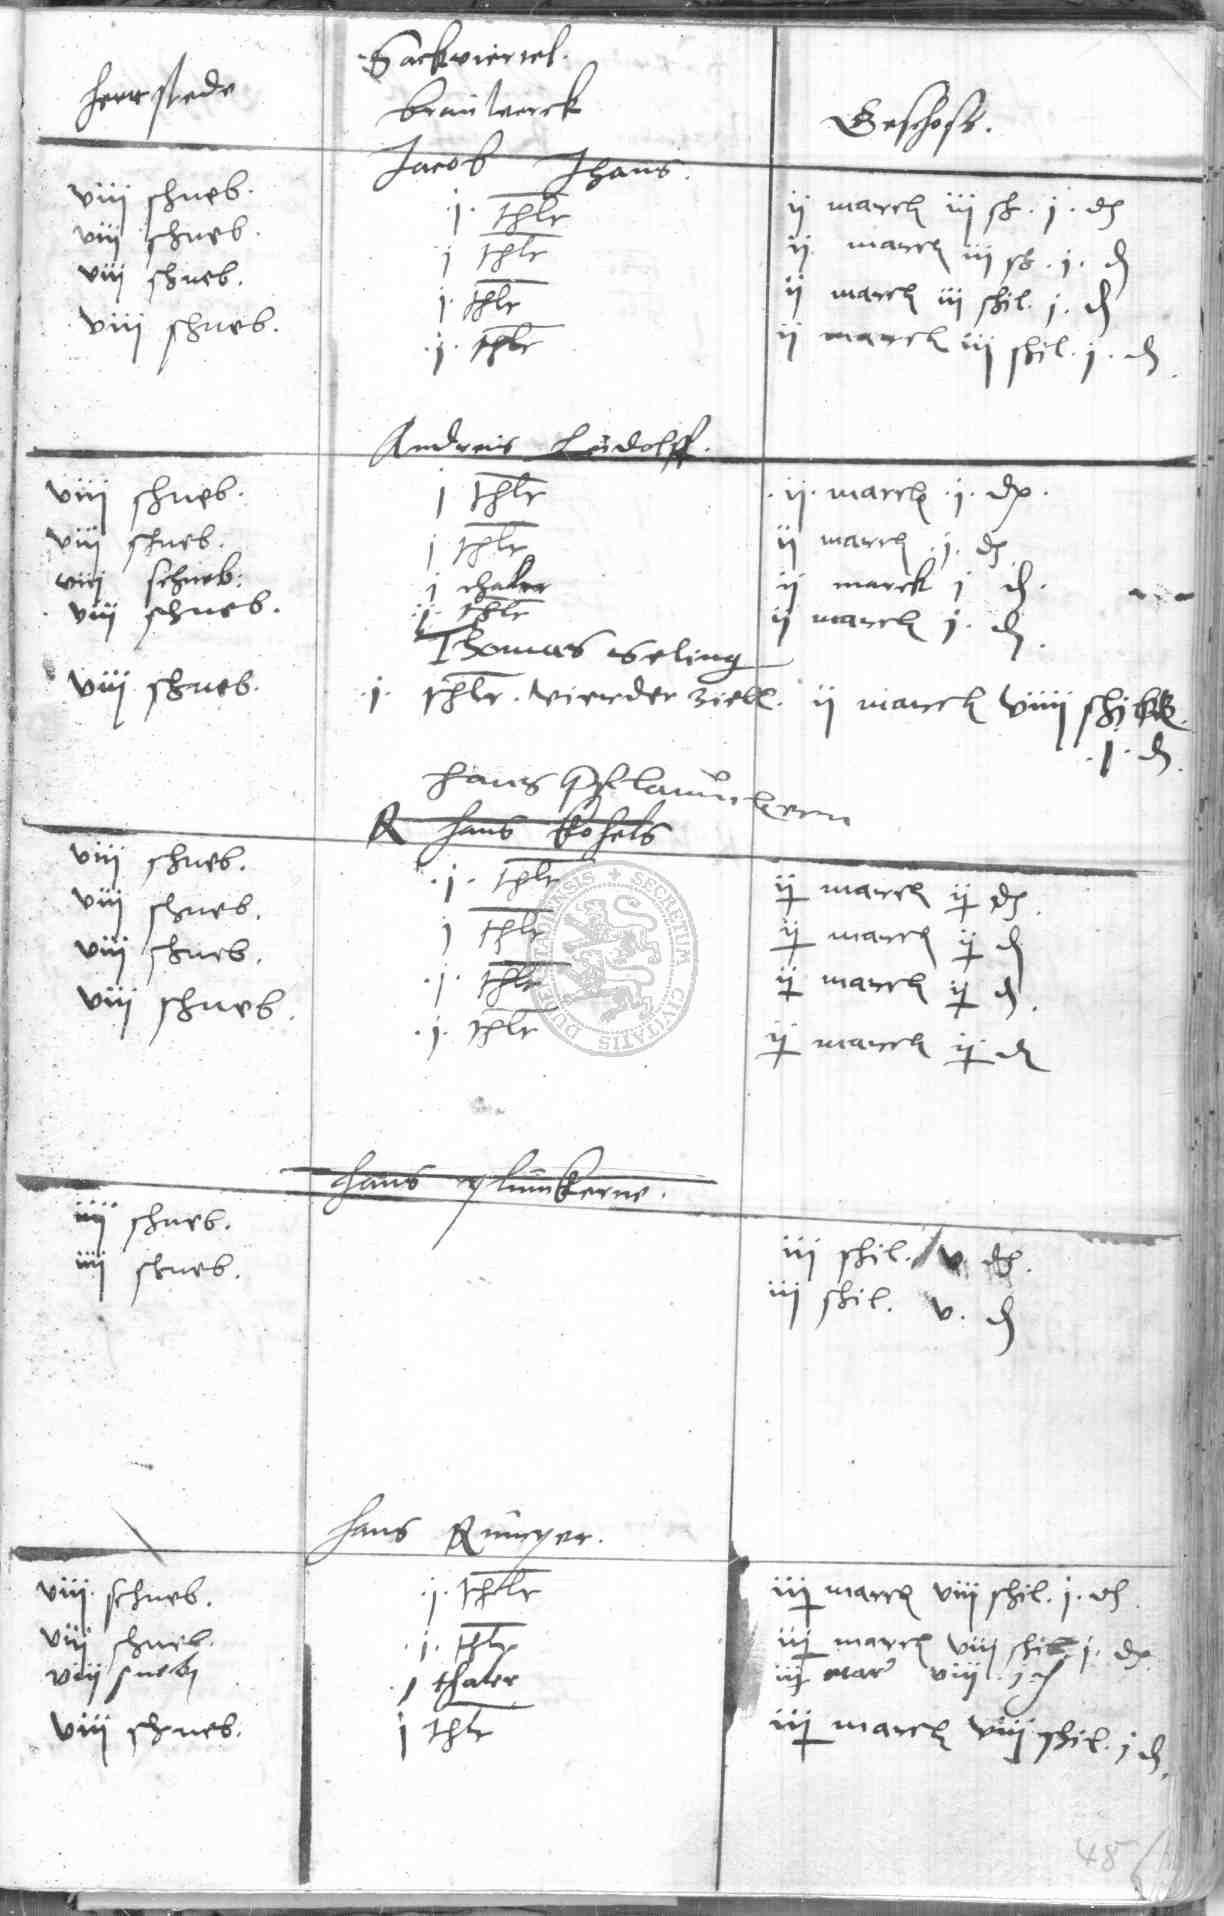 Sackviertel.
herrstede brauwerck Geschoss.
Jacob Jhans.
viij schneb. .j. thlr ij marck iij sh. j. d
viij schneb. j thlr ij marck iij sh. j. d
viij schneb. j. thlr ij marck iij shil. j. d
viij schneb. .j. thlr ij marck iij shil. j. d.
Andreis Ludolff.
viij schneb. j thlr .ij. marck .j. d.
viij schneb. j thlr ij marck .j. d
viij schneb. j thaler ij marck j d.
viij schneb. .j. thlr ij marck j. d.
Thomas iseling
viij schneb. .j. thlr. vierder ziell. ij marck viiij shil
.j. d.
hans
R hans
viij schneb. .j. thlr ij marck ij d.
viij schneb. j thlr ij marck ij d
viij schneb. .j. thlr ij marck ij d.
viij schneb. .j. thlr ij marck ij d
SECRETUM CIVITATIS
hans
iiij schneb. iij shil. v d.
iiij schneb. iij shil. v. d
hans
viij. schneb. .j. thlr iij marck viij shil. j. d.
viij schneb. .j. thlr iij marck viij shil j. d.
viij sneb j thaler iij mar viij. j
viij schneb. j thlr iij marck viij shil. j d.
48